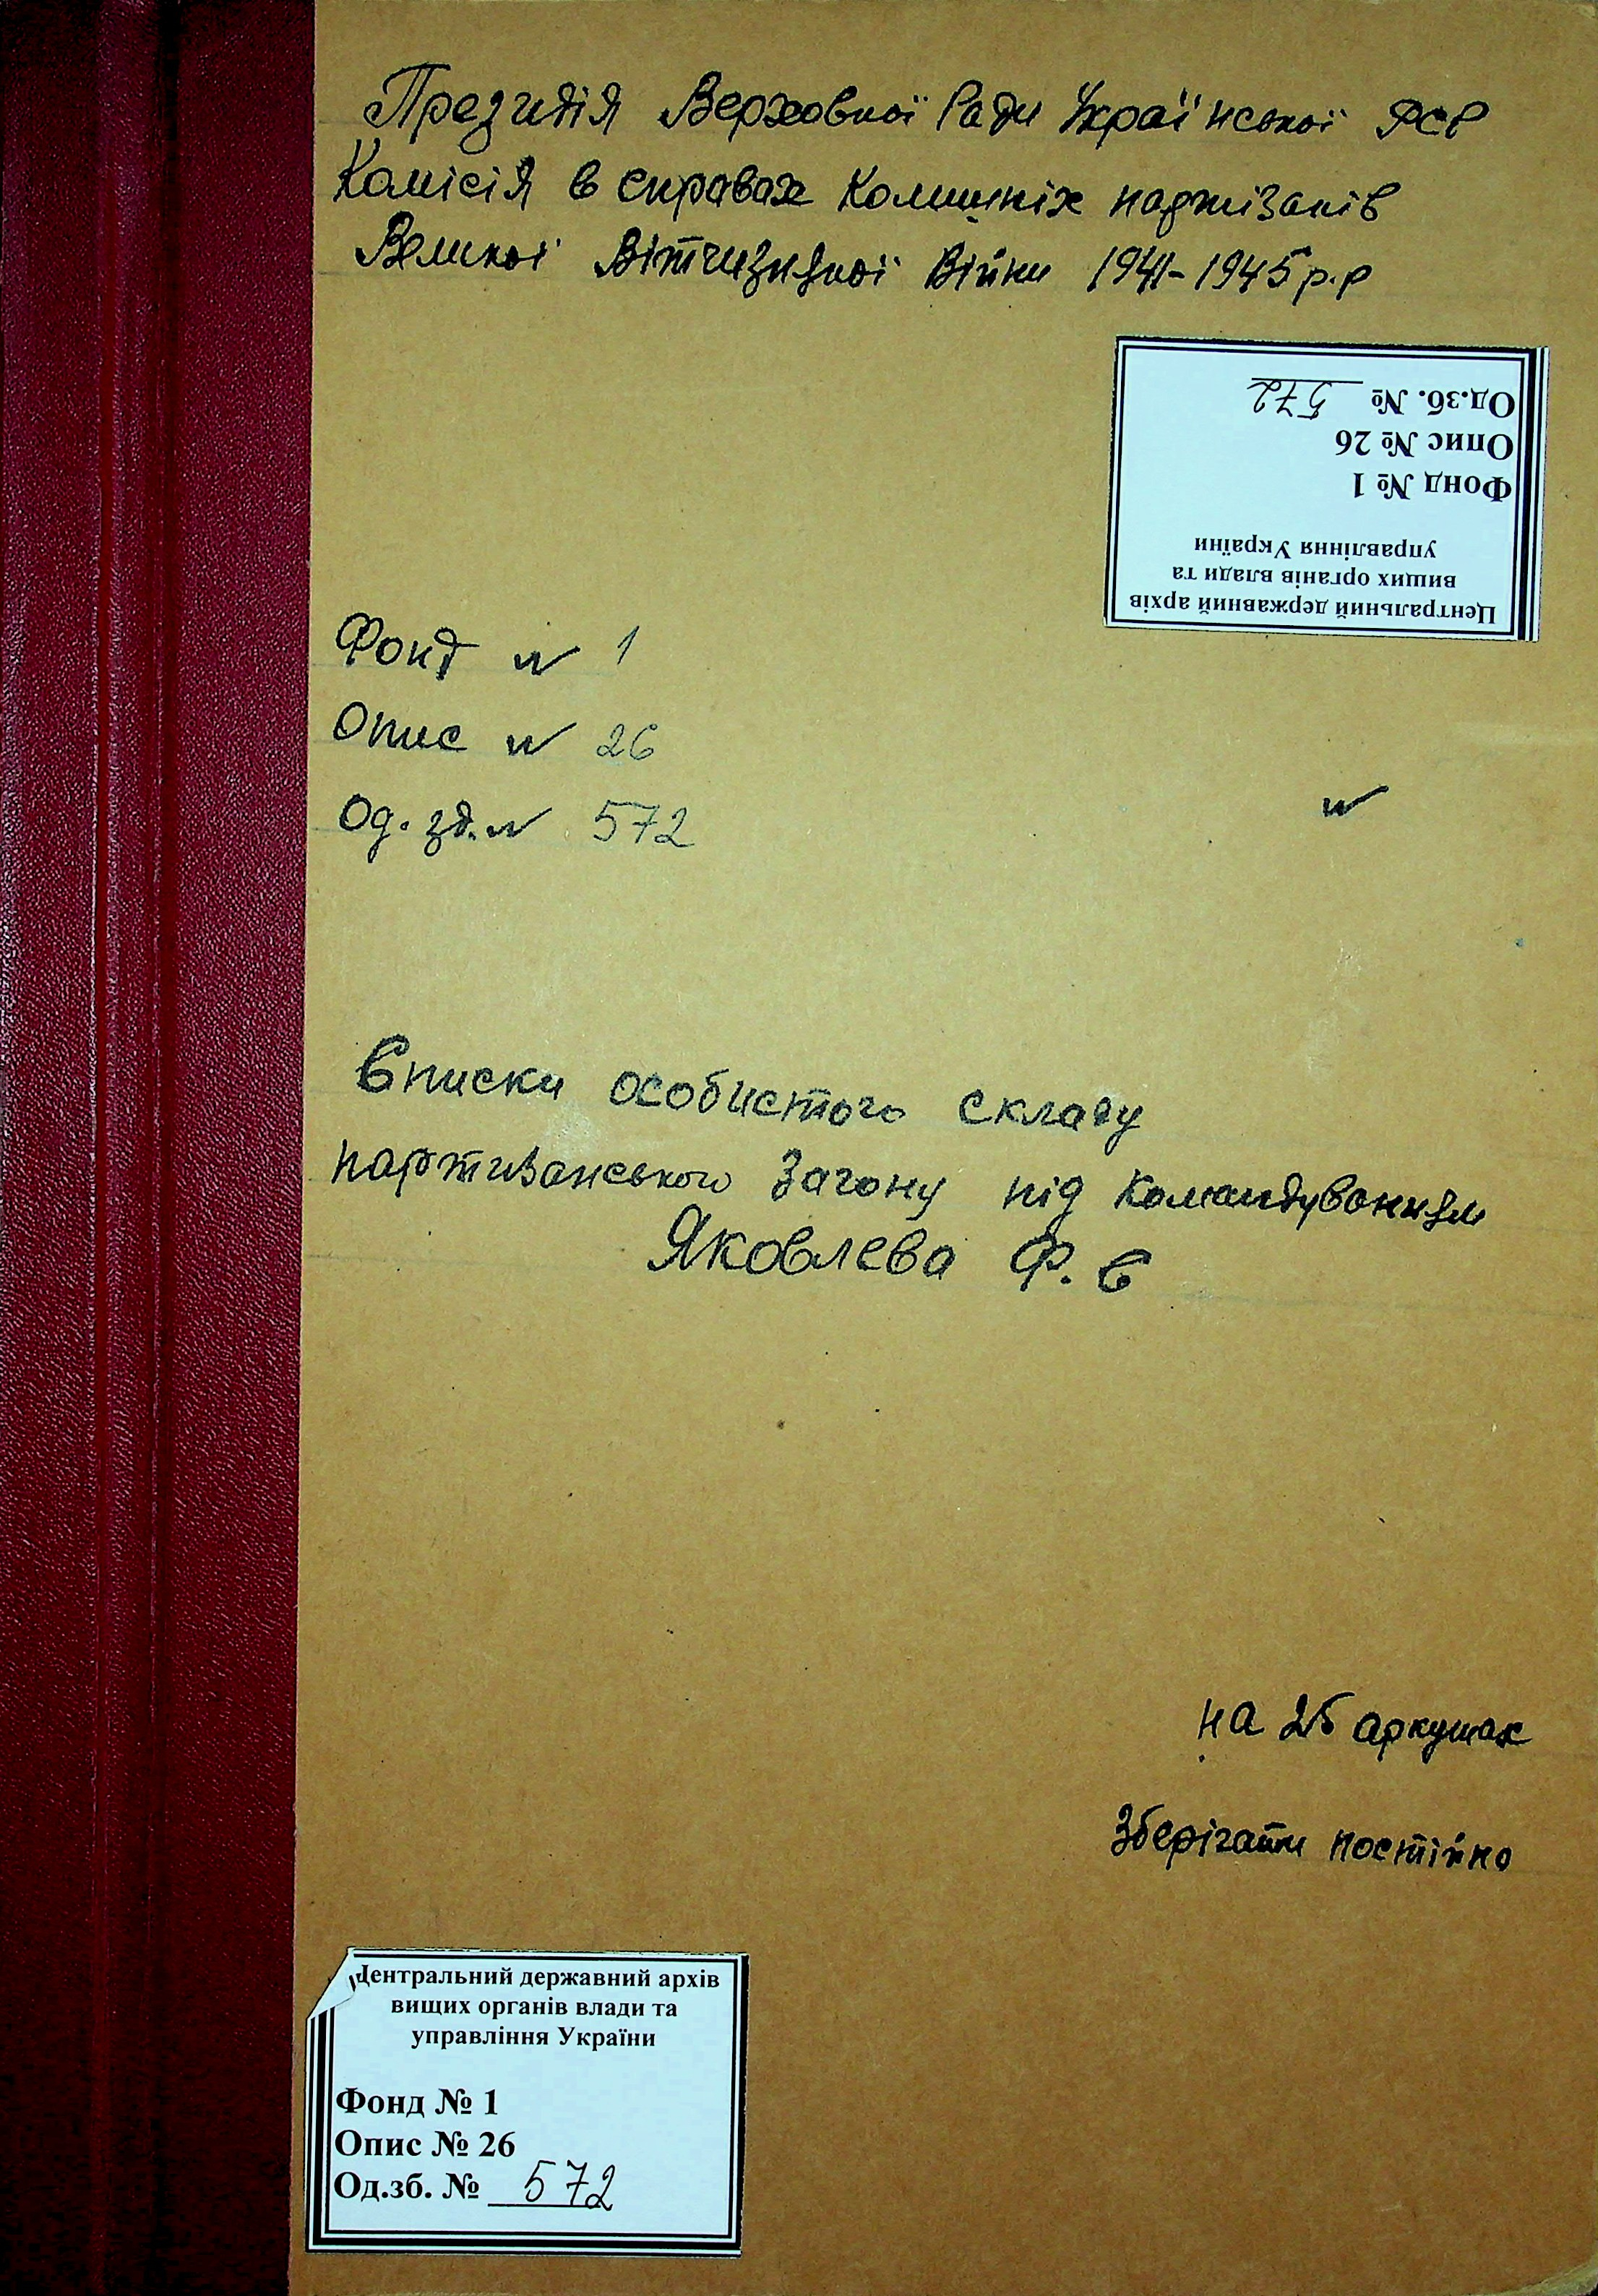 Президія Верховної Ради Української РСР
Комісія в справах колишніх партизанів
Великої Вітчизняної війни 1941-1945 р.р
Од.зб. № 572
Опис № 26
Фонд № 1
Центральний державний архів
вищих органів влади та
управління України
Фонд № 1
Опис № 26
Од. зб. № 572
№
Списки особистого складу
партизанського загону під командуванням
Яковлева Ф. Є
на 25 аркушах
Зберігати постійно
Центральний державний архів
вищих органів влади та
управління України
Фонд № 1
Опис № 26
Од.зб. № 572